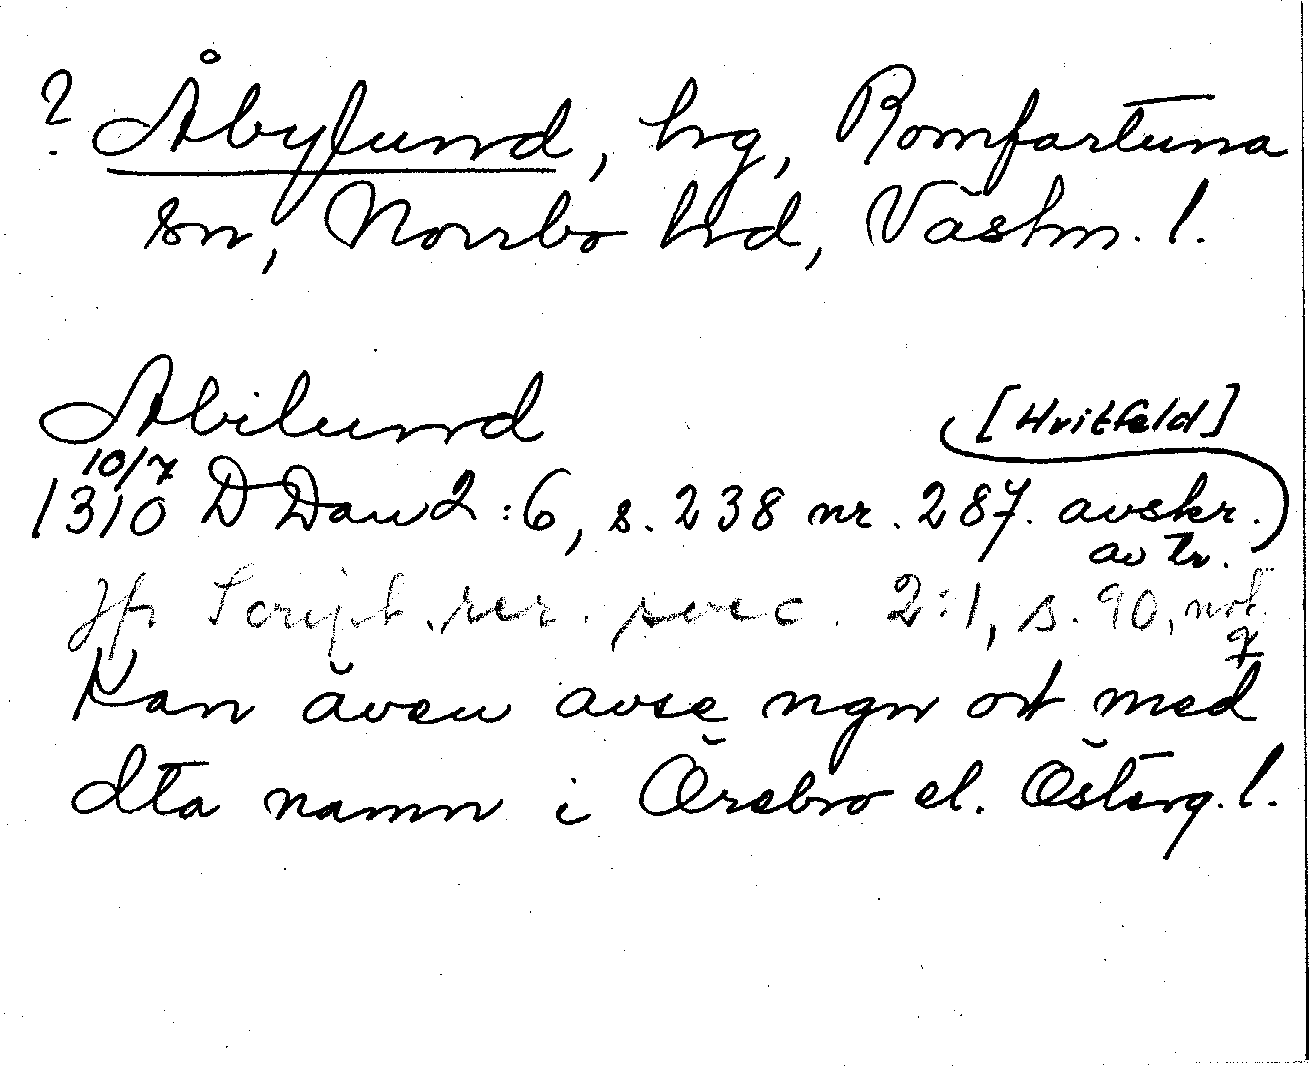 ? Åbylund, hg, Romfartuna
sn, Norrbo hrd, Västm. l.
Abilund [Hvitfeld]
10/7
1310 D Dan 2:6, s. 238 nr. 287. avskr.
av tr.
Jfr Script. rer. svec. 2:1, s. 90, not.
q
Kan även avse ngn ort med
dta namn i Örebro el. Österg. l.